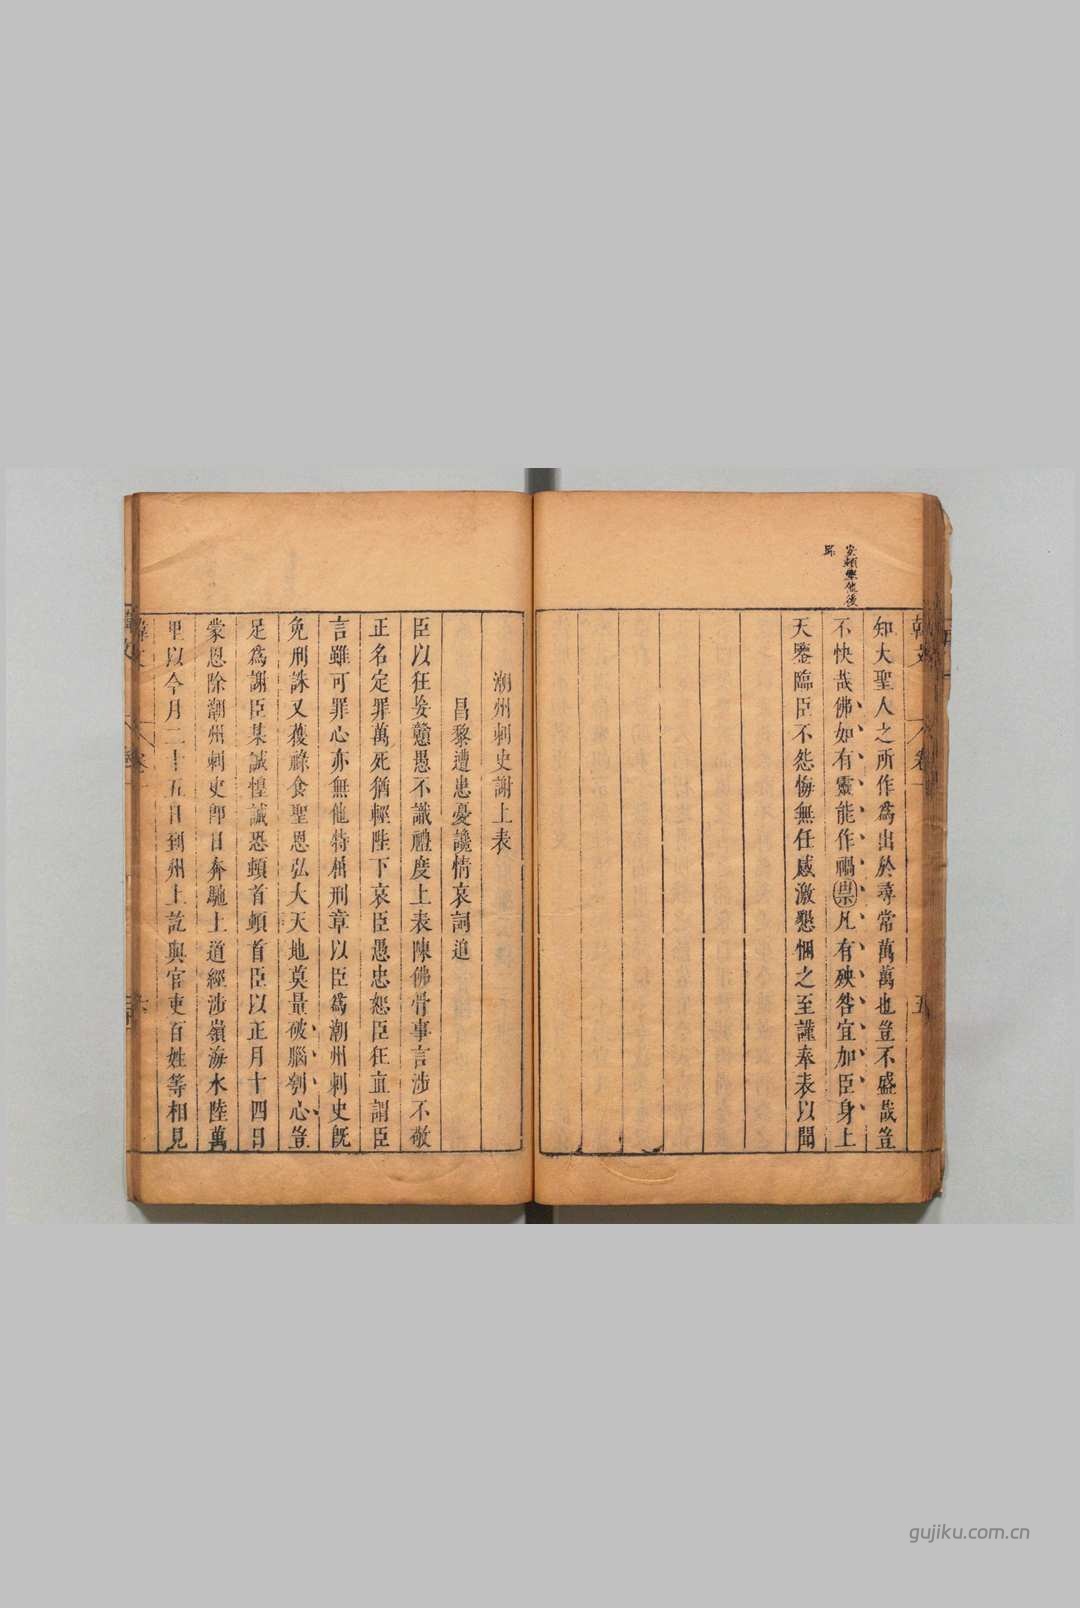 安頓無他後
歸
知大聖人之所作爲出於尋常萬萬也豈不盛哉豈
不快哉佛如有靈能作禍祟凡有殃咎宜加臣身上
天鑒臨臣不怨悔無任感激懇悃之至謹奉表以聞
韓文
卷一
五
潮州刺史謝上表
昌黎遭患憂讒情哀詞追
臣以狂妄戇愚不識禮度上表陳佛骨事言涉不敬
正名定罪萬死猶輕陛下哀臣愚忠恕臣狂直謂臣
言雖可罪心亦無他特屈刑章以臣爲潮州刺史旣
免刑誅又獲祿食聖恩弘大天地莫量破腦刳心豈
足爲謝臣某誠惶誠恐頓首頓首臣以正月十四日
蒙恩除潮州刺史卽日奔馳上道經涉嶺海水陸萬
里以今月二十五日到州上訖與官吏百姓等相見
韓文
卷一
六
gujiku.com.cn